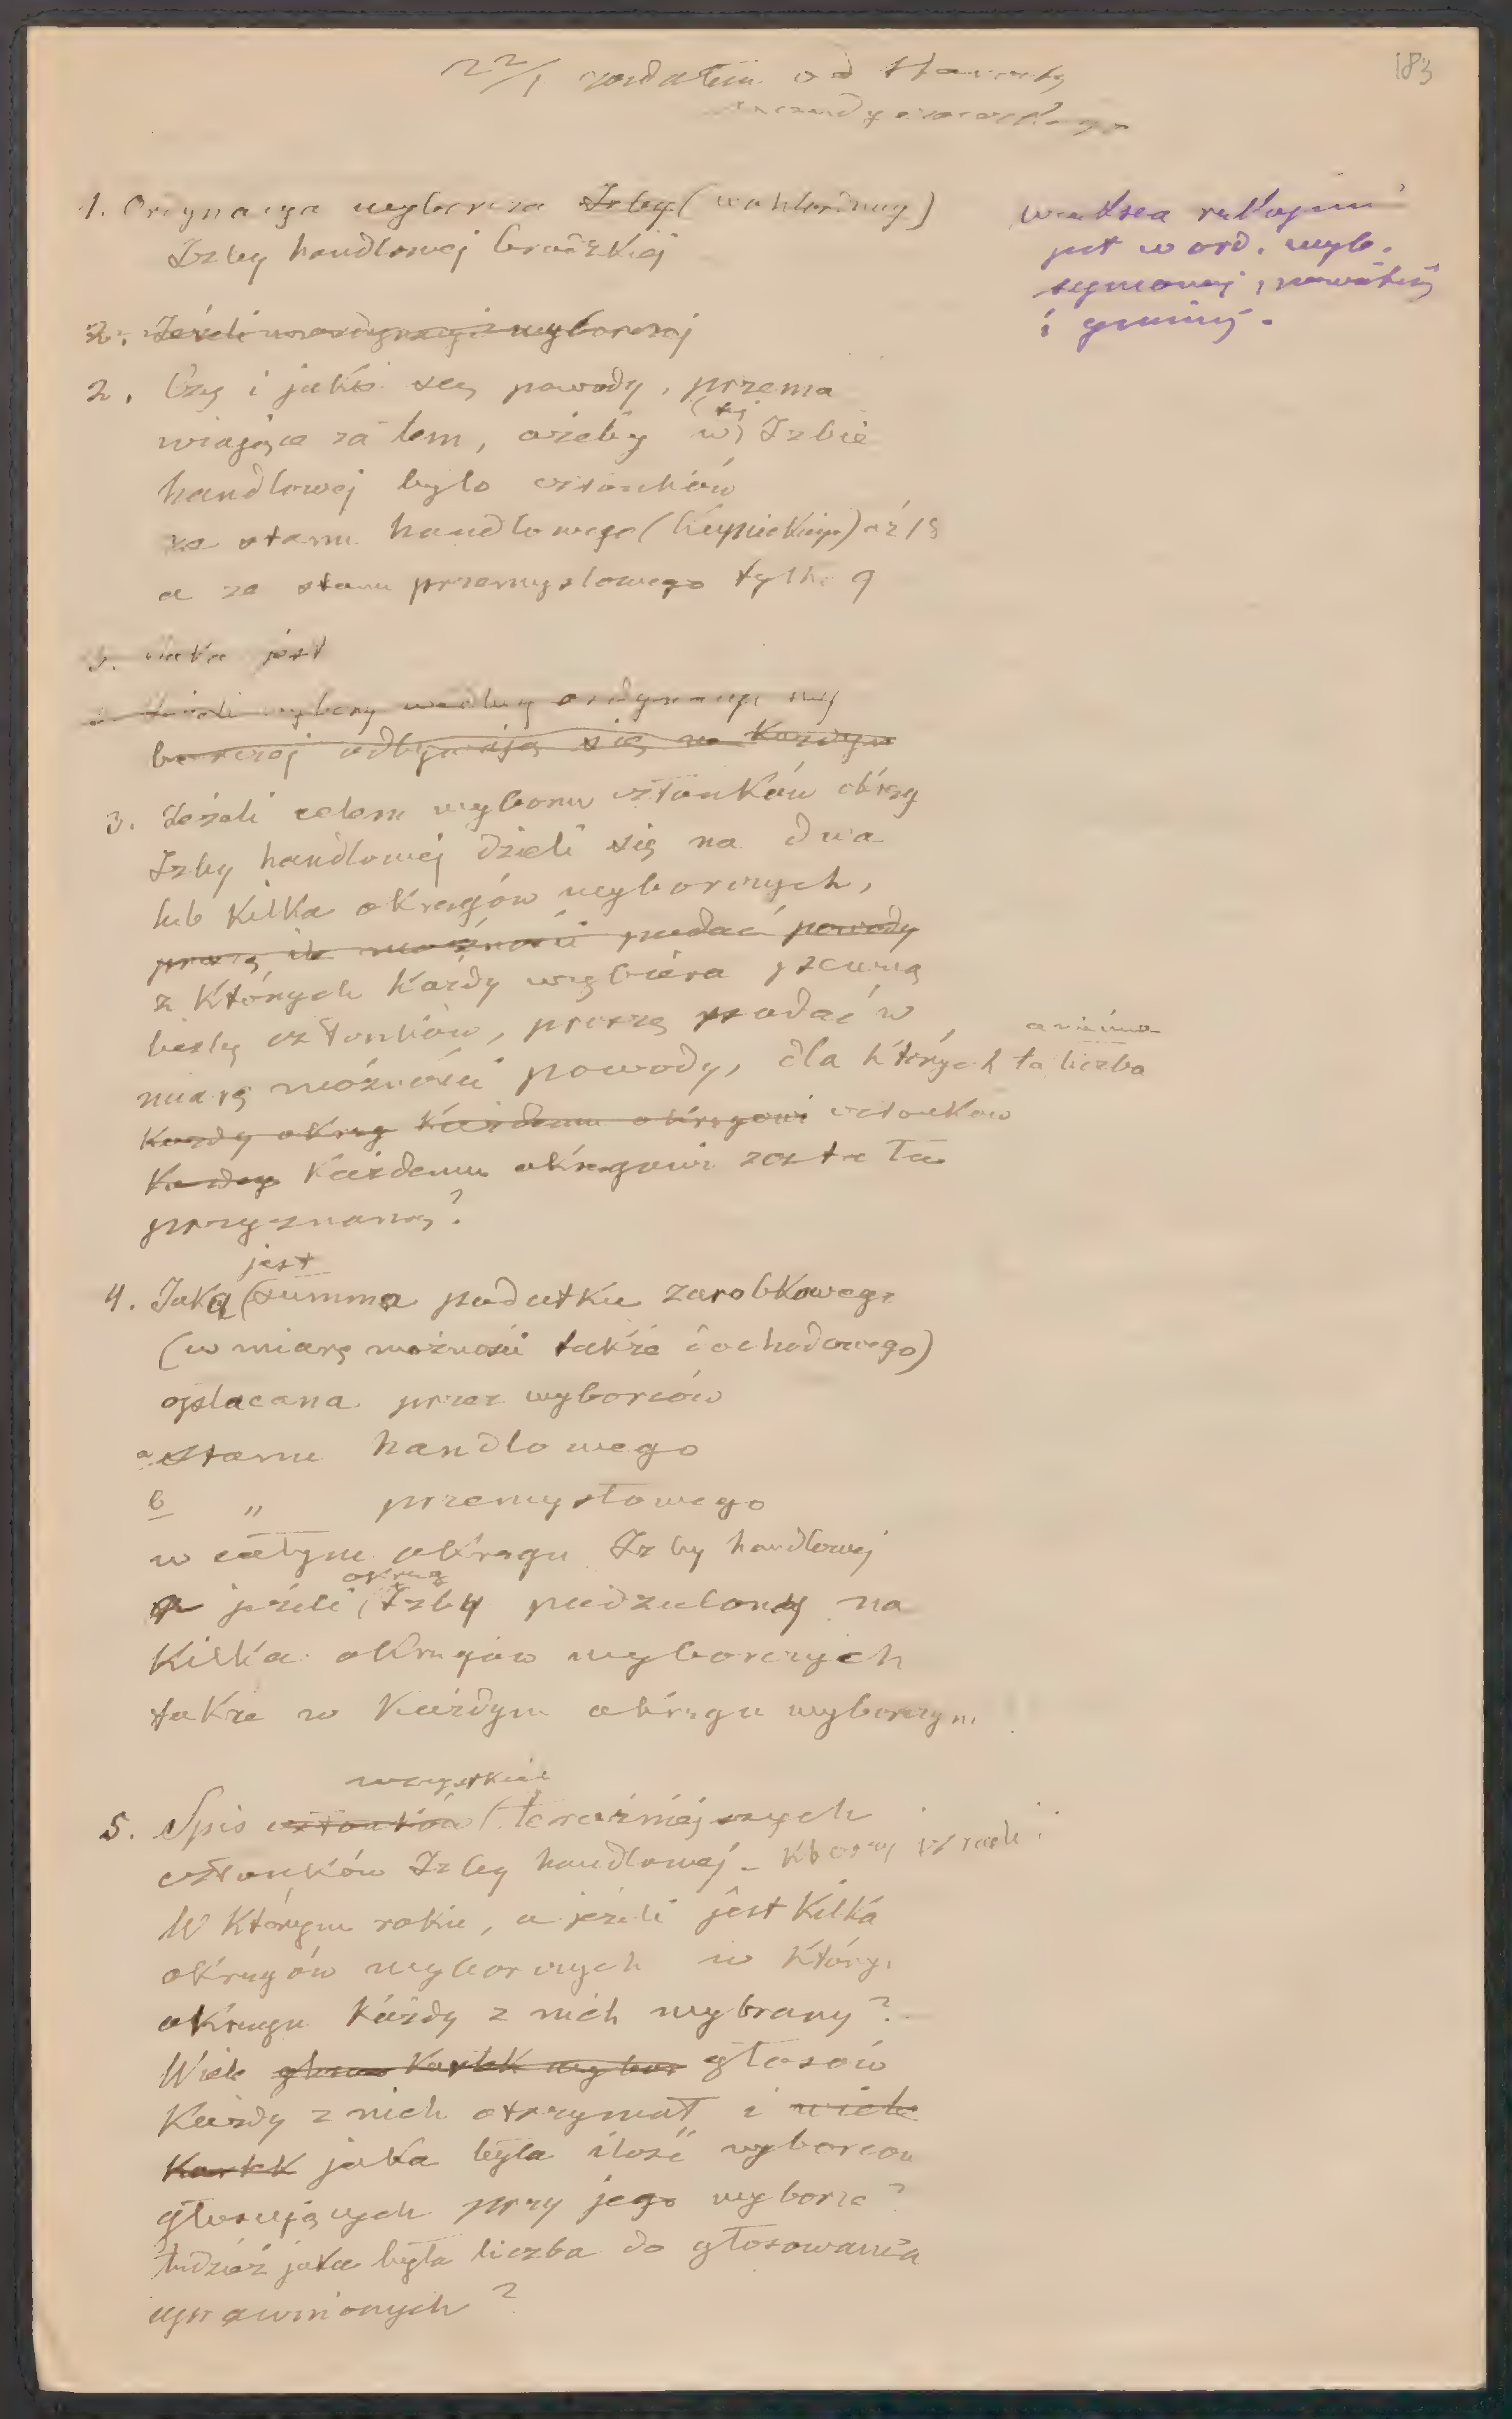 183
22/1 od
1. Ordynacya wyborcza Izby (Wahlordnung)
Izby handlowej
w ord. wyb.
i
2. Jeżeli wyborczej
2. Czy i jakie są powody, przema
wiające za tem, ażeby w tej Izbie
handlowej było członków
ze stanu handlowego (kupieckiego) aż 15
a ze stanu przemysłowego tylko 9
3. Jaka jest
wybory według ordynacyi wy
borczej odbywają się w
3. Jeżeli celem wyboru członków okrąg
Izby handlowej dzieli się na dwa
lub kilka okręgów wyborczych,
proszę możności podać powody
z których każdy wybiera pewną
liczbę członków, proszę podać w
miarę możności powody, dla których ta liczba
Każdy okrąg każdemu okręgowi członków
Każdy każdemu okręgowi została
przyznaną?
4. Jaką jest summa podatku zarobkowego
(w miarę możności także dochodowego)
opłacana przez wyborców
a stanu handlowego
b " przemysłowego
w całym okręgu Izby handlowej
a jeżeli okrąg Izby podzielony na
kilka okręgów wyborczych
także w każdym okręgu wyborczym
5. Spis członków wszystkich teraźniejszych
członków Izby handlowej –
W którym roku, a jeżeli jest kilka
okręgów wyborczych w którym
okręgu każdy z nich wybrany?
Wiele kartek wybor głosów
Każdy z nich otrzymał i wiele
kartek jaka była ilość wyborców
głosujących przy jego wyborze?
tudzież jaka była liczba do głosowania
uprawnionych?